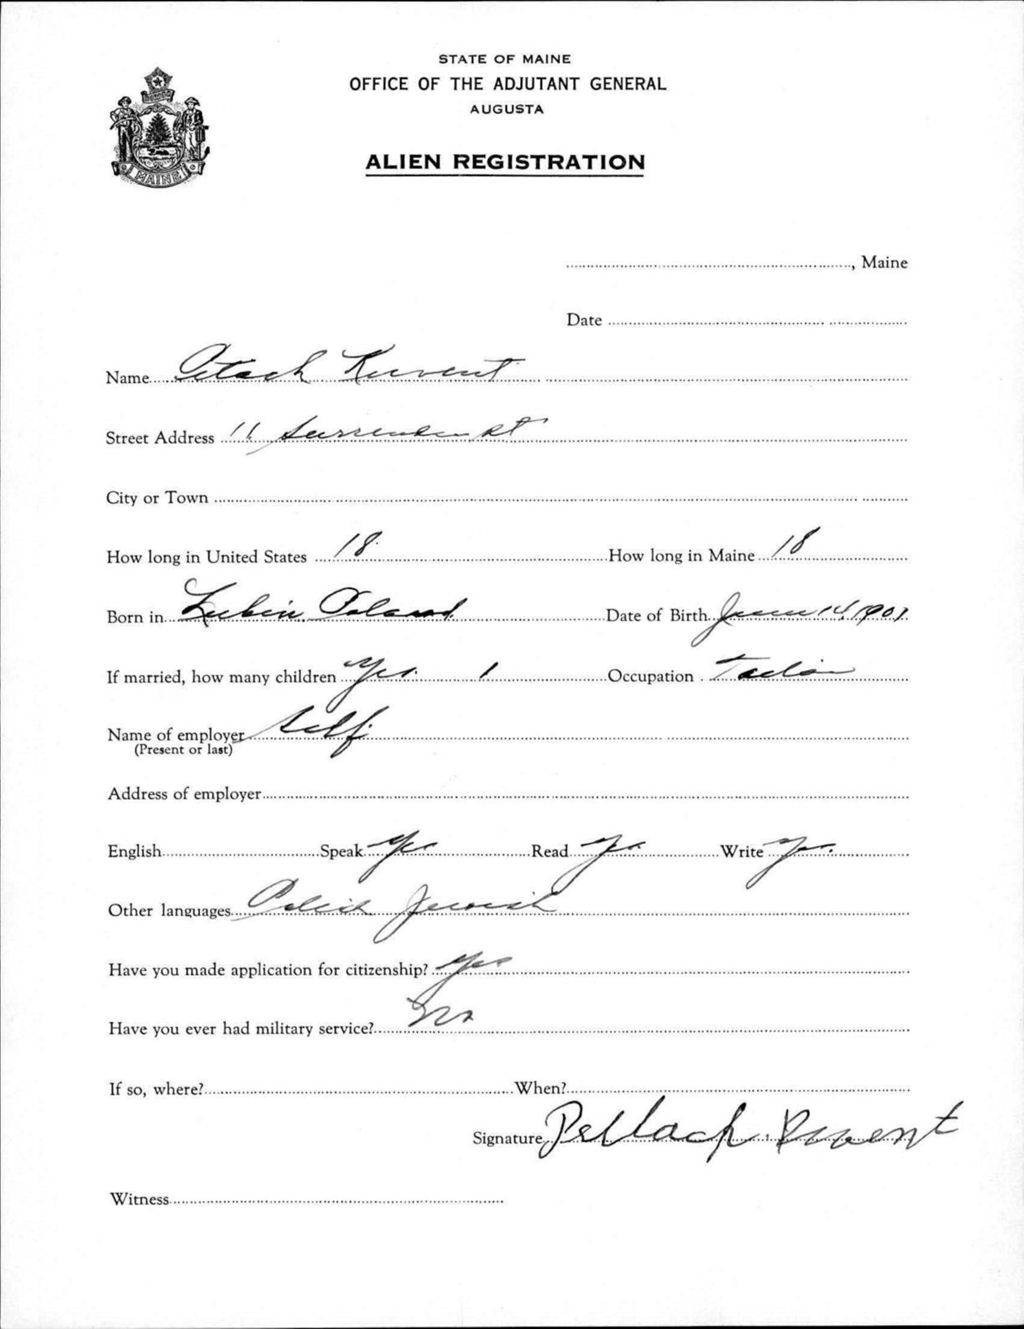 STATE OF MAINE
OFFICE OF THE ADJUTANT GENERAL
AUGUSTA
ALIEN REGISTRATION
MAINE
, Maine
Date
Name
Street Address 11 st
City or Town
How long in United States 18 How long in Maine 18
Born in Lubin, Poland Date of Birth June 14, 1901
If married, how many children Yes. 1 Occupation Tailor
Name of employer Self
(Present or last)
Address of employer
English Speak Yes Read Yes Write Yes.
Other languages Polish Jewish
Have you made application for citizenship? Yes
Have you ever had military service? No
If so, where? When?
Signature
Witness